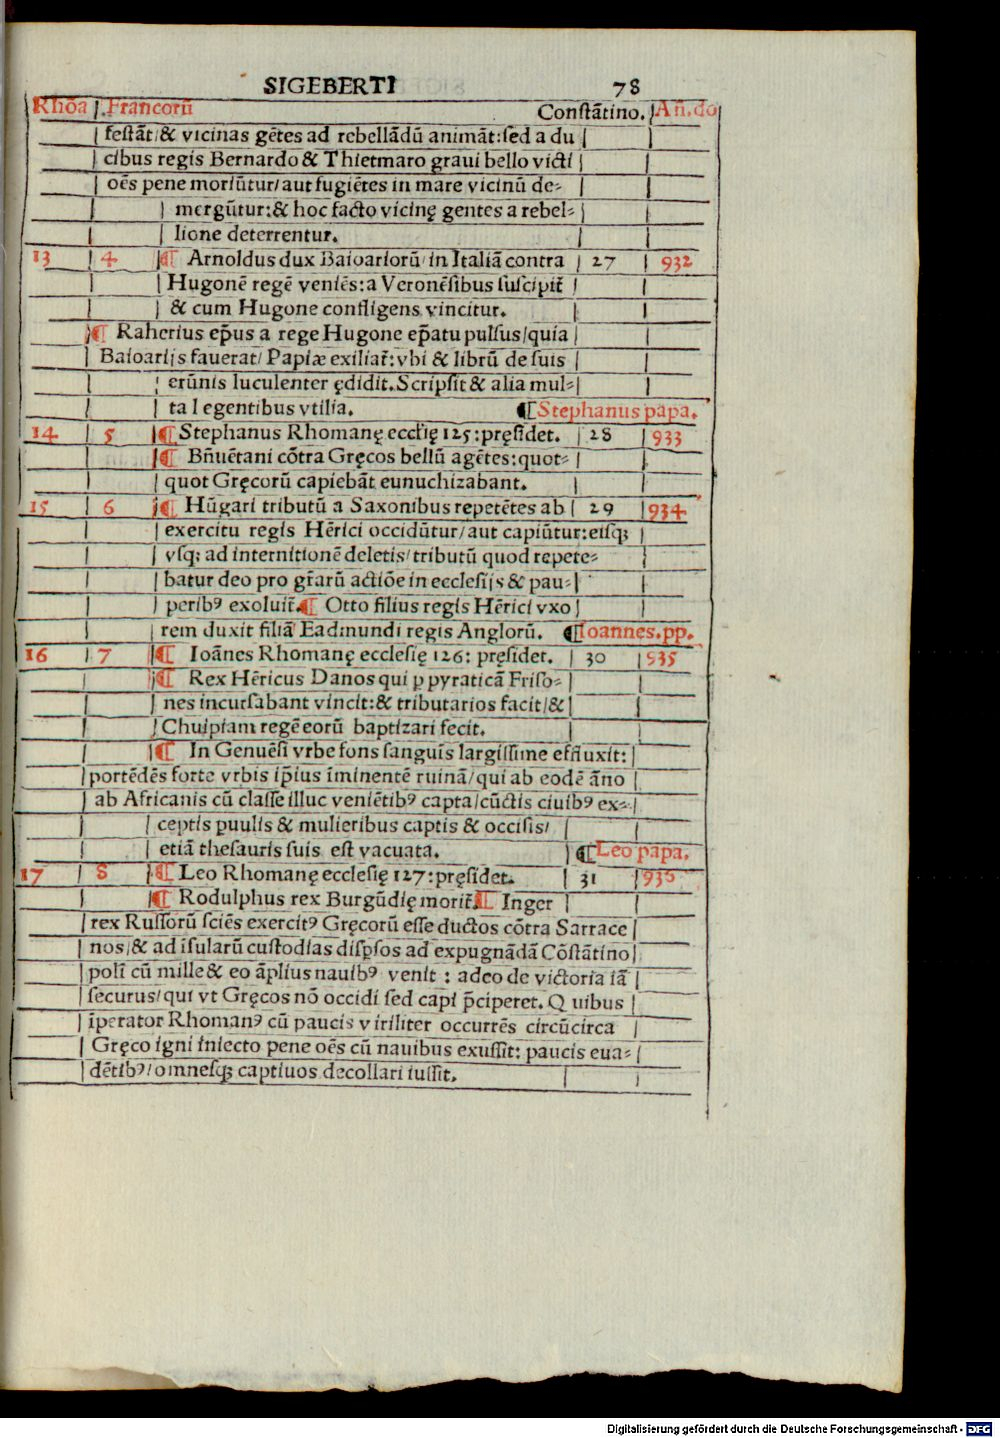 SIGEBERTI 78
Rhōa Francorū Constātino. Añ.do
festāt/& vicinas gētes ad rebellādū animāt:sed a du
cibus regis Bernardo & Thietmaro graui bello victi
oēs pene moriūtur/aut fugiētes in mare vicinū de-
mergūtur:& hoc facto vicinę gentes a rebel-
lione deterrentur.
13 4 ¶ Arnoldus dux Baioariorū/in Italiā contra 27 932
Hugonē regē veniēs:a Veronēsibus suscipit̄
& cum Hugone confligens vincitur.
¶ Raherius ep̄us a rege Hugone ep̄atu pulsus/quia
Baioariis fauerat/Papiæ exiliat̄:vbi & librū de suis
erūnis luculenter ędidit.Scripsit & alia mul-
ta legentibus vtilia. ¶Stephanus papa.
14 5 ¶Stephanus Rhomanę eccl̄ię 125:pręsidet. 28 933
¶ Bn̄uētani cōtra Gręcos bellū agētes:quot-
quot Gręcorū capiebāt eunuchizabant.
15 6 ¶ Hūgari tributū a Saxonibus repetētes ab 29 934
exercitu regis Hērici occidūtur/aut capiūtur:eisqꝫ
vsqꝫ ad internitionē deletis/tributū quod repete-
batur deo pro gr̄arū actiōe in ecclesiis & pau-
peribꝰ exoluit̄.¶ Otto filius regis Hērici vxo
rem duxit filiā Eadmundi regis Anglorū. ¶Ioannes.pp.
16 7 ¶ Ioānes Rhomanę ecclesię 126: pręsidet. 30 935
¶ Rex Hēricus Danos qui ꝑ pyraticā Friso-
nes incursabant vincit:& tributarios facit/&
Chuipiam regē eorū baptizari fecit.
¶ In Genuēsi vrbe fons sanguīs largissime effluxit:
portēdēs forte vrbis ip̄ius īminentē ruinā/qui ab eodē āno
ab Africanis cū classe illuc veniētibꝰ capta/cūctis ciuibꝰ ex-
ceptis puulis & mulieribus captis & occisis/
etiā thesauris suis est vacuata. ¶Leo papa.
17 8 ¶ Leo Rhomanę ecclesię 127:pręsidet. 31 936
¶ Rodulphus rex Burgūdię morit̄.¶ Inger
rex Russorū sciēs exercitꝰ Gręcorū esse ductos cōtra Sarrace
nos/& ad īsularū custodias disp̄sos ad expugnādā Cōstātino
polī cū mille & eo āplius nauibꝰ venit : adeo de victoria iā
securus/qui vt Gręcos nō occidi sed capi p̄ciperet. Q uibus
īperator Rhomanꝰ cū paucis viriliter occurrēs circūcirca
Gręco igni iniecto pene oēs cū nauibus exussit: paucis eua-
dētibꝰ/omnesqꝫ captiuos decollari iussit.
Digitalisierung gefördert durch die Deutsche Forschungsgemeinschaft - DFG